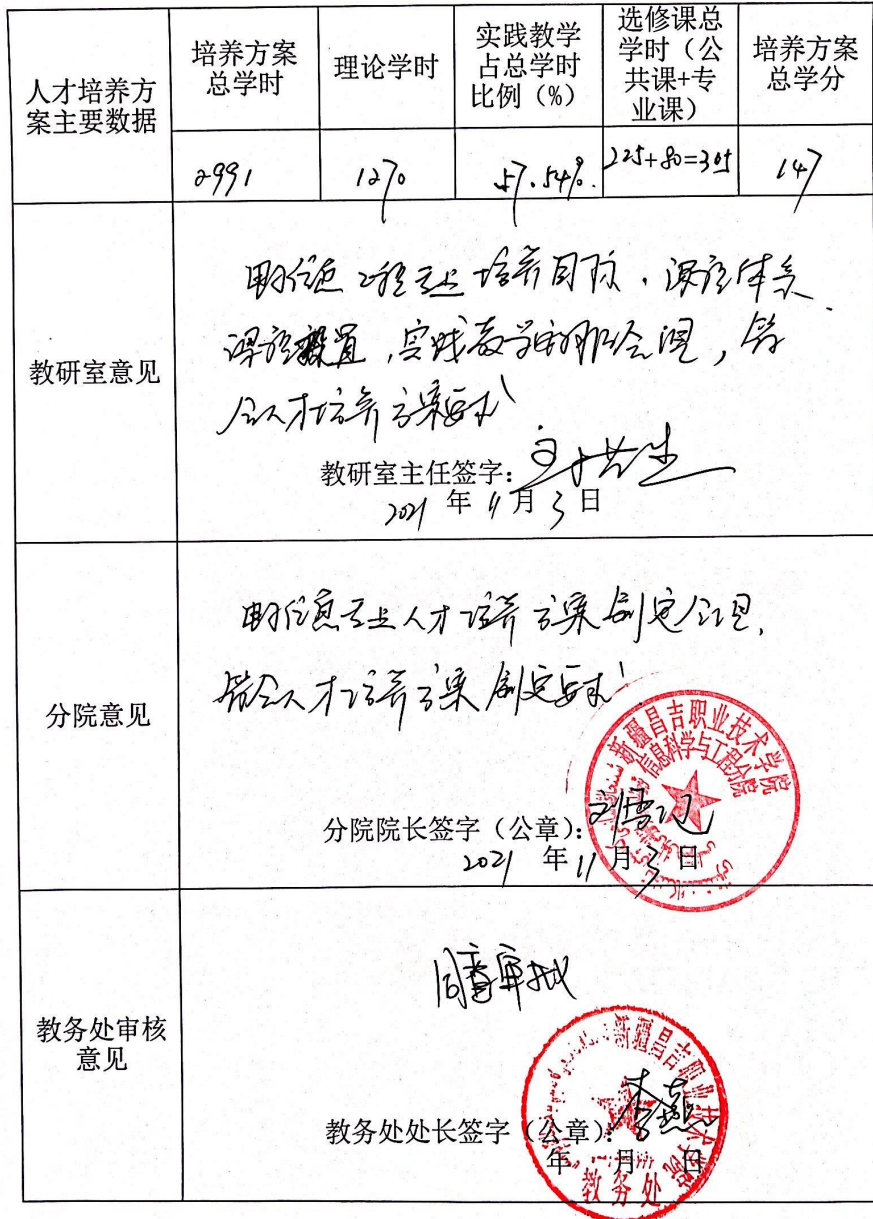 人才培养方
案主要数据
培养方案
总学时
理论学时
实践教学
占总学时
比例（%）
选修课总
学时（公
共课+专
业课）
培养方案
总学分
2991
1270
57.54%.
225+80=305
147
教研室意见
培养目标，课程体系
课程设置，实践教学安排合理，符
合人才培养方案要求
教研室主任签字：
2021 年 11 月 3 日
分院意见
信息专业人才培养方案制定合理，
符合人才培养方案制定要求
新疆昌吉职业技术学院
信息科学与工程分院
分院院长签字（公章）：
2021 年 11 月 3 日
教务处审核
意见
同意审批
新疆昌吉职业技术学院
教务处处长签字（公章）：李燕
年 月 日
教务处